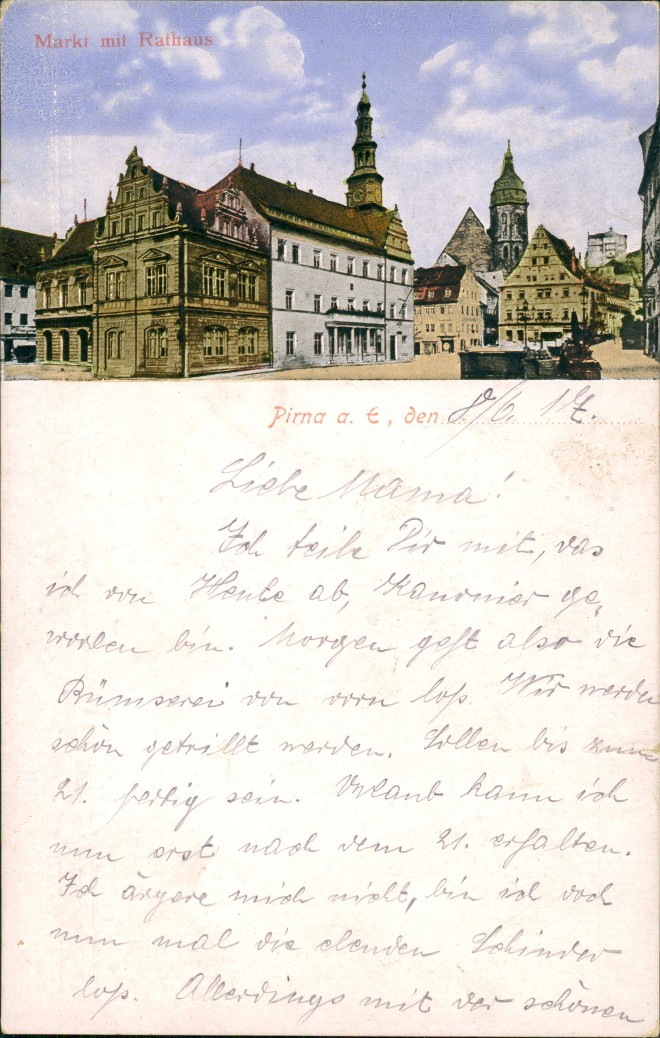 Markt mit Rathaus
Pirna a. E, den 8/6. 17.
Liebe Mama!
Ich teile Dir mit, das
ich von Heute ab, Kanonier ge-
worden bin. Morgen geht also die
Bümserei von vorn los. Wir werden
schön getrillt werden. Sollen bis zum
21. fertig sein. Urlaub kann ich
nun erst nach dem 21. erhalten.
Ich ärgere mich nicht, bin ich doch
nun mal die elenden Schinder
los. Allerdings mit der schönen